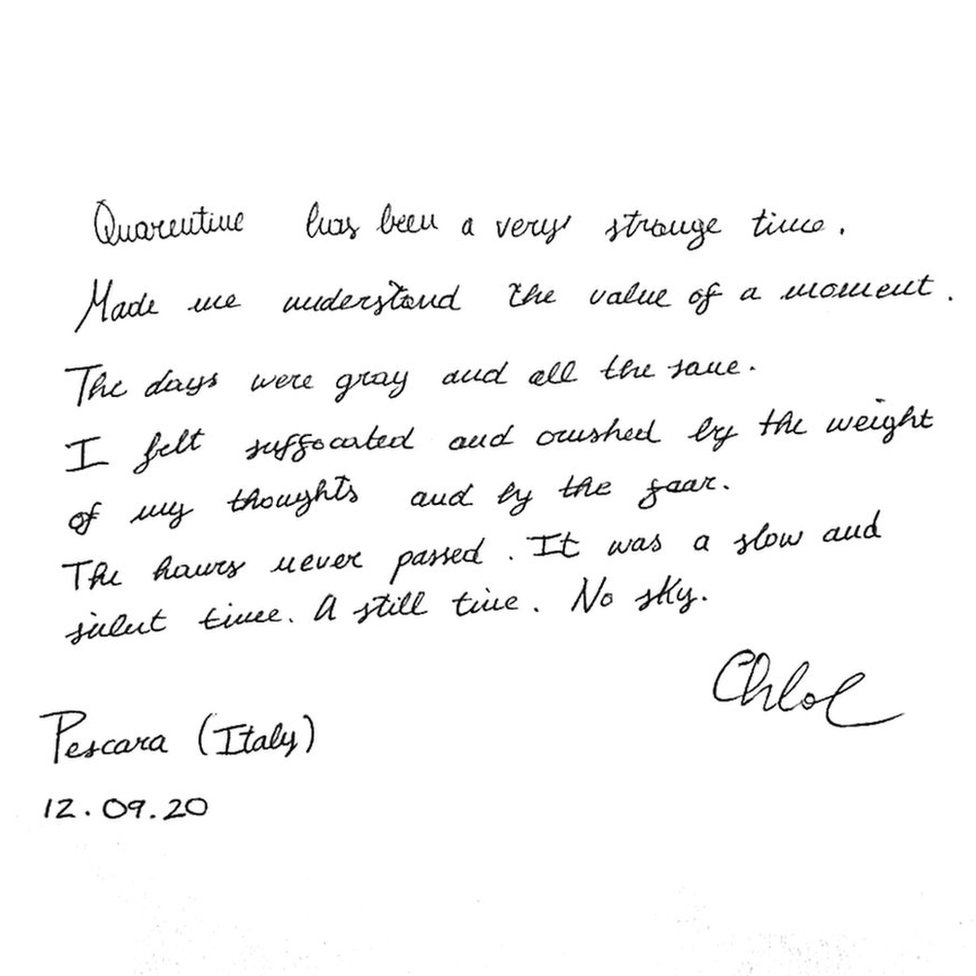 Quarentine has been a very strange time.
Made me understand the value of a moment.
The days were gray and all the same.
I felt suffocated and crushed by the weight
of my thoughts and by the fear.
The hours never passed. It was a slow and
silent time. A still time. No sky.
Chloe
Pescara (Italy)
12.09.20